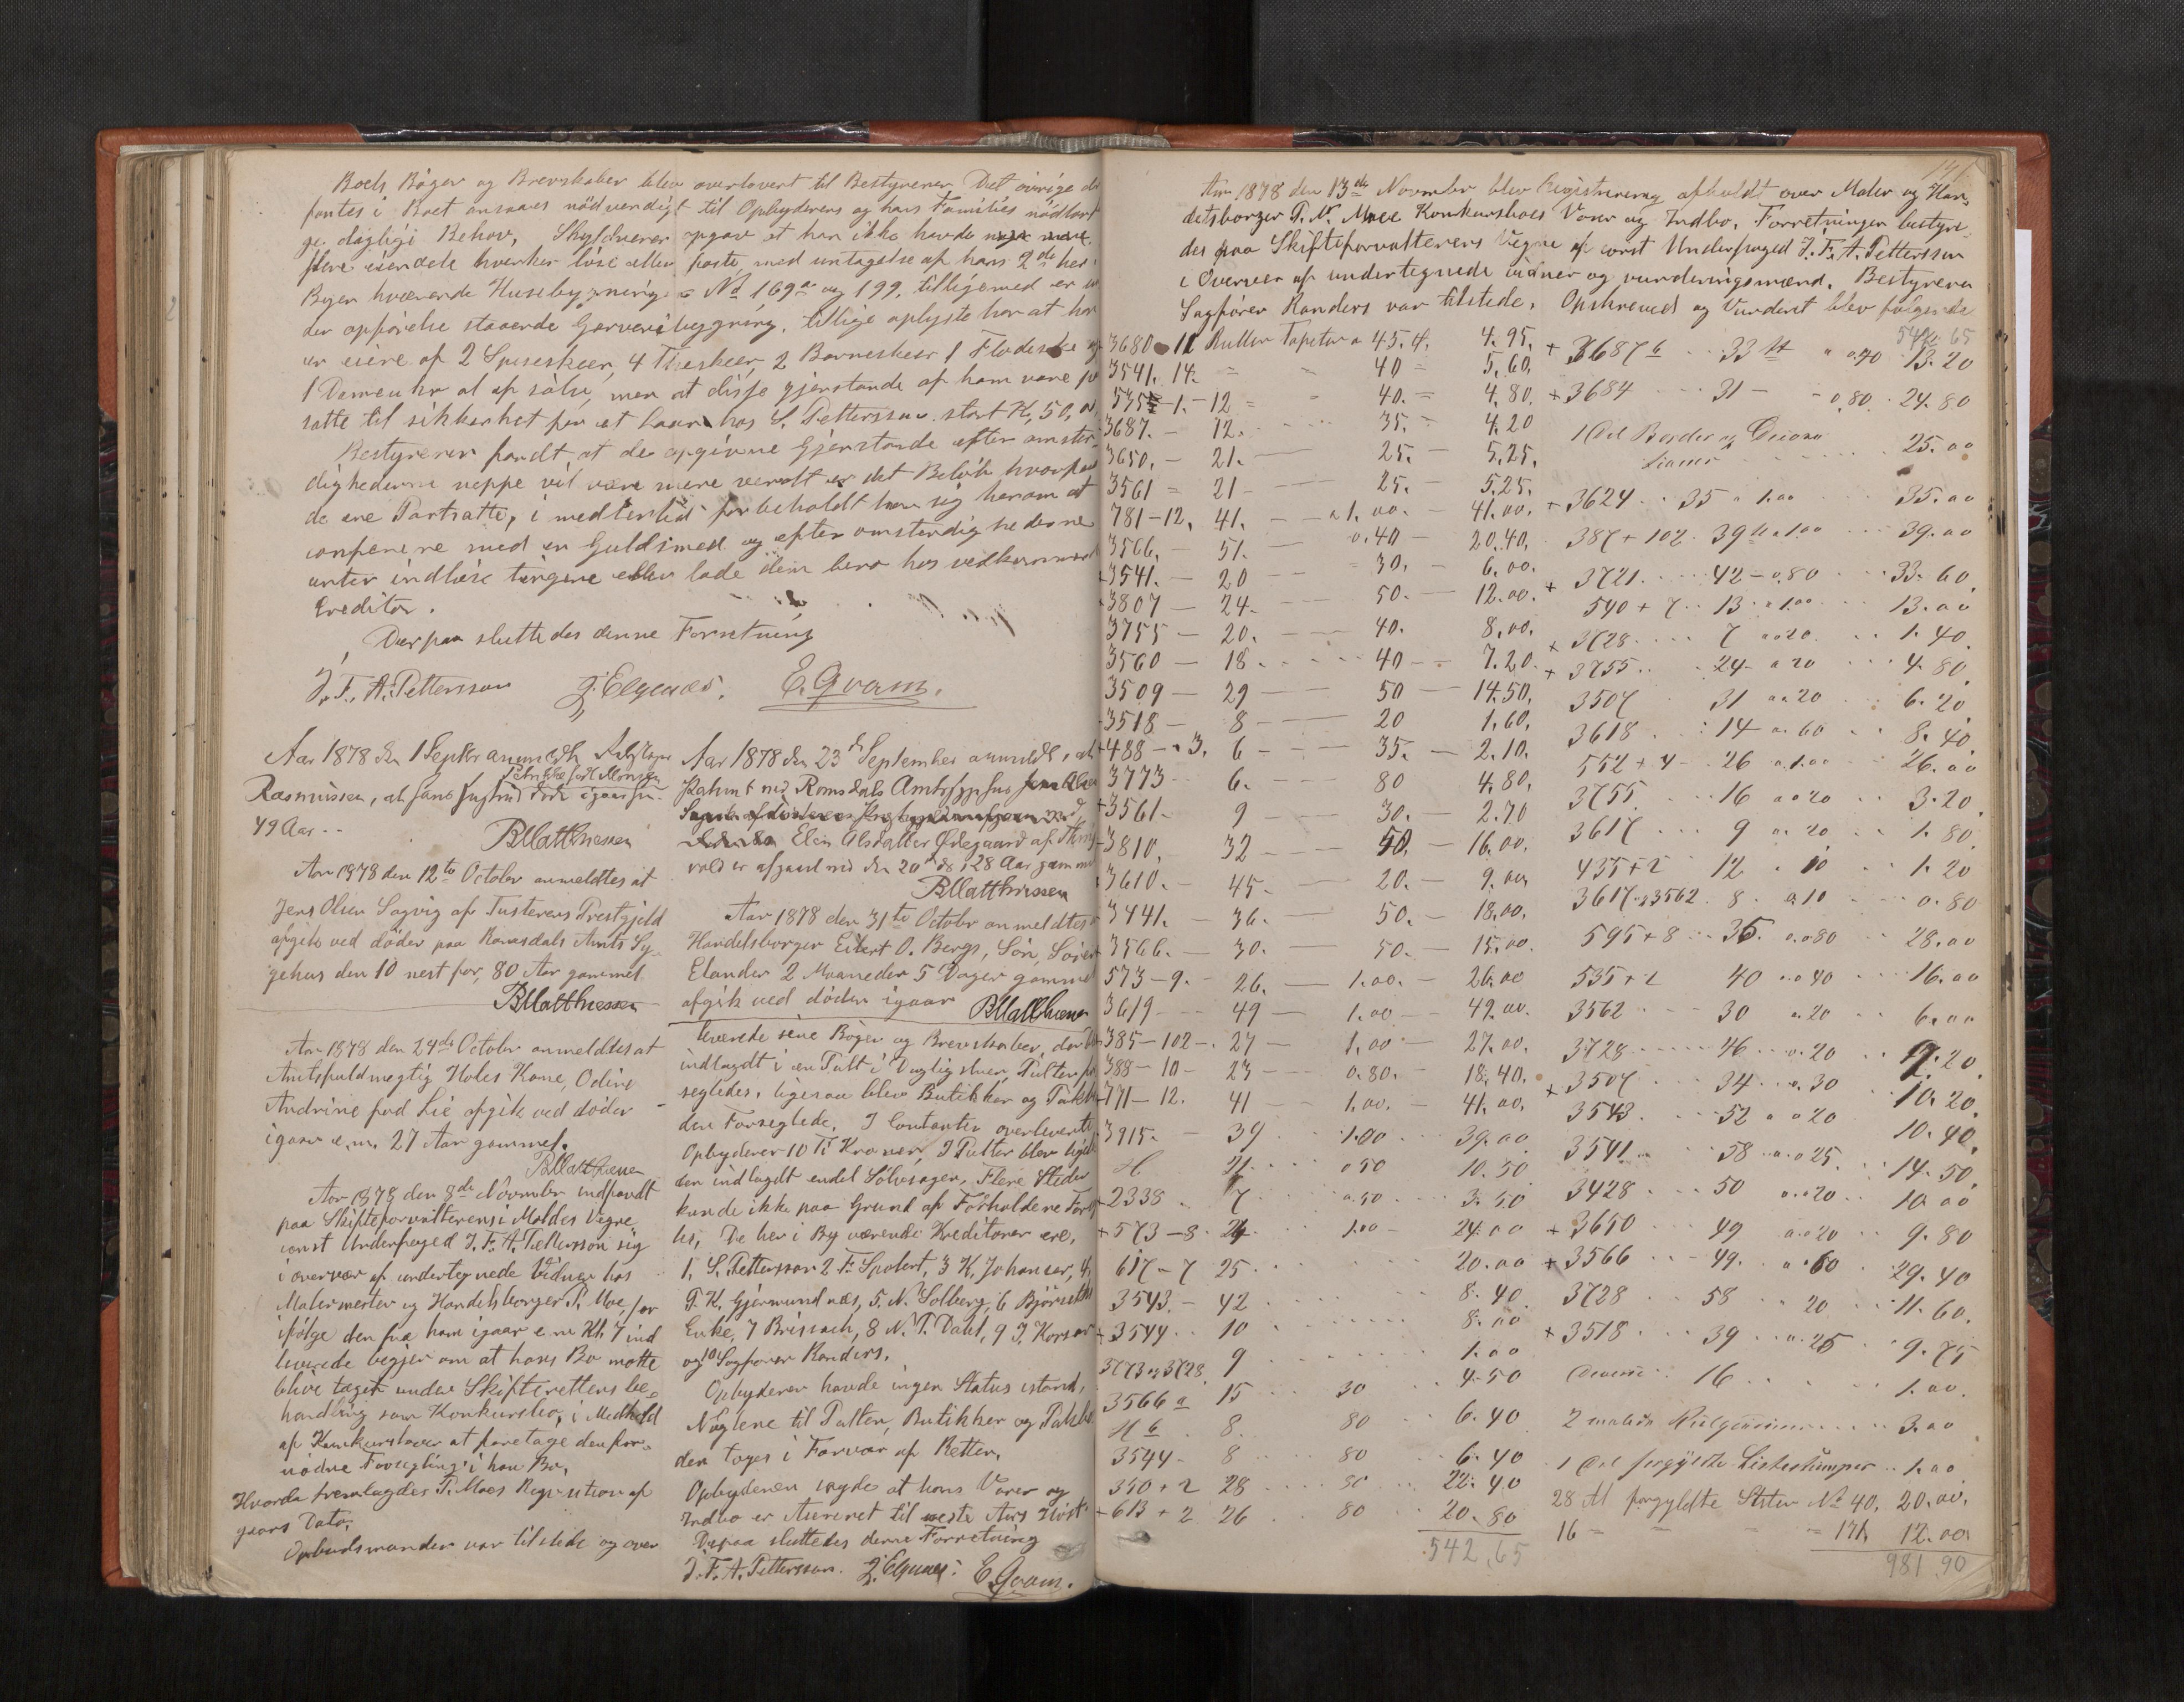 Boets Bøger og Brevskaber blev overlevert til Bestyreren. Det øvrige der
fantes i Boet ansaaes nödvendigt til Opbyderens og hans Families nödtørf
ge daglige Behov, Skyldneren opgav at han ikke havde
flere eiendele hverken löse eller faste, med untagelse af hans 2de her i
Byen hværende Husebygninger No 169a og 199, tilligemed en un
der opførelse staaende Garveribygning, tillige oplyste han at han
er eiere af 2 Spiseskeer, 4 Theskeer, 2 Barneskeer 1 Flödeske og
1 Dameuhr alt af sölv, men at disse gjenstande af ham vare for
satte til sikkerhet for et Laan hos S. Pettersson stort K. 50,00
Bestyreren fandt at de opgivne Gjenstande efter omsten
dighederne neppe vil være mere værdt er det Belöb hvorfor
de ere Pantsatte, i medlertid forbeholdt han sig herom at
conferere med en Guldsmed og efter omstendighederne
enten indløse tingene eller lade dem bero hos vedkommende
Creditor.
Derpaa sluttedes denne Forretning
J. F. A. Pettersson E. Qvam.
Aar 1878 den 1 Septbr anmeldte
Rasmussen, at hans Hustru døde igaar
49 Aar
BMatthiessen
Aar 1878 den 12te October anmeldtes at
Jens Olsen Sagvig af Tusterens Prestgjeld
afgik ved döden paa Romsdals Amts Sy-
gehus den 10 nest for, 80 Aar gammel
BMatthiessen
Aar 1878 den 24de October anmeldtes at
Amtsfuldmegtig Holes Kone, Odine
Andrine fød Lie afgik ved döden
igaar e.m. 27 Aar gammel.
BMatthiessen
Aar 1878 den 8de November indfandt
paa Skifteforvalterens i Moldes Vegne
const Underfoged J. F. A. Pettersson sig
i overvær af undertegnede Vidner hos
Malermester og Handelsborger P. Moe, for
ifölge den fra ham igaar e.m. Kl. 7 ind
leverede begjer om at hans Bo maatte
blive taget under Skifterettens be-
handling som Konkursbo, i Medhold
af Konkursloven at foretage den for-
nødne Forsegling i han Bo,
Hvorda fremlagdes P. Moes Reqvisition af
gaars Dato,
Opbudsmanden var tilstede og over
Aar 1878 den 23de September anmeldtes, at
Patient ved Romsdals Amtssygehus
Elen Olsdatter Ødegaard af Thing
vold er afgaaet ved den 20de ds 28 Aar gammel
BMatthiessen
Aar 1878 den 31te October anmeldtes
Handelsborger Eilert O. Bergs, Sön,
Elander 2 Maaneder 5 Dager gammel
afgik ved döden igaar BMatthiessen
leverede sine Bøger og Brevskaber, der
indlagdt i en Pult i Dagligstuen, Pulten for
segledes, ligesaa blev Butikker og Pakbo
den Forseglede. I Contanter overleverte
Opbyderen 10 Ti Kroner, I Pulten blev liges
den indlagdt endel Sølvsager, Flere Steder
kunde ikke paa Grund af Forholdene Forseg
les, De her i By værende Kreditorer ere,
1, S. Pettersson 2 F. Spolert, 3 K. Johansen, 4,
P. K. Gjermundnæs, 5. N. Solberg, 6 Björnstads
Enke, 7 Brissach, 8 N. P. Dahl, 9 J. Korsør
og 10 Sagförer Randers.
Opbyderen havde ingen Status istand,
Nöglene til Pulten, Butikker og Pakbo
den toges i Forvar af Retten.
Opbyderen sagde at hans Varer og
Indbo er Assureret til neste Aars Höst
Derpaa sluttedes denne Forretning
J. F. A. Pettersson. E. Qvam.
141
Aar 1878 den 13de November blev Registrering afholdt over Maler og Han-
delsborger P. N. Moes Konkursboes Varer og Indbo, Forretningen bestyre-
des paa Skifteforvalterens Vegne af const Underfoged J. F. A. Pettersson
i Overvær af undertegnede vidner og vurderingsmænd. Bestyreren
Sagfører Randers var tilstede. Opskreved og Vurderet blev følgende
3680 11 Ruller Tapeter a 45. 4. 4.95.
3541. 14. 40 5.60.
535-1.-12 40. 4.80.
3687. 12. 35. 4.20
3650. 21. 25. 5.25.
3561 21 25. 5.25.
781-12. 41. a 1.00. 41.00.
3566. 51. 0.40 20.40.
3541. 20 30. 6.00.
3807 24. 50. 12.00.
3755 20. 40. 8.00.
3560 18. 40 7.20.
3509 29 50 14.50.
3518 8 20 1.60.
488-3. 6 35. 2.10.
3773 6. 80 4.80.
3561 9 30. 2.70
3810. 32 50. 16.00.
3610. 45. 20. 9.00
3441. 36. 50. 18.00.
3566. 30. 50. 15.00.
573-9. 26. 1.00. 26.00
3619 49 1.00 49.00.
385-102. 27 1.00 27.00.
388-10 23 0.80. 18.40.
771-12. 41 1.00. 41.00.
3915. 39 1.00 39.00
H 21 a 50 10.50
2338. 7 a 50 3.50
573-8. 24 1.00 24.00
617-7 25 20.00
3543. 42 8.40
3544 10 8.00
3773 og 3728. 9 1.00
3566 a 15 30 4.50
H b 8. 80 6.40
3544 8 80 6.40
350+2 28 80 22.40
613+2 26 80 20.80
542,65
542. 65
+ 3687 b 33 a 0.40 13.20
+ 3684 31 0.80. 24.80
1 Del Border og
25.00
+ 3624 35 a 1.00 35.00
387+102. 39 a 1.00 39.00
+ 3721. 42 0.80 33.60
540+7 13 a 1.00 13.00
+ 3728 7 a 0.20 1.40.
+ 3755 24 a 20 4.80.
3507 31 a 0.20 6.20
3618 14 a 60 8.40
552+4 26 a 1.00 26.00
3755. 16 a 0.20 3.20
3617 9 a 20 1.80
435+2 12 10 1.20
3617 og 3562. 8. a 10 0.80
595+8 35. a 0.80 28.00
535+2 40 a 0.40 16.00
3562 30 a 20 6.00
3728 46 a 0.20 9.20.
+ 3507 34 a 30 10.20.
3543. 52 a 0.20 10.40.
3541 58 a 0.25. 14.50.
3428 50 a 0.20 10.00
+ 3650 49 a 0.20 9.80
+ 3566 49. a 60 29.40
3728 58 20 11.60.
+ 3518 39 a 25 9.75
16 1.00.
2 malede 3.00
1 Del forgyldte Listestumper 1.00
28 Al forgyldte Lister No 40. 20.00.
16 12.00
981.90